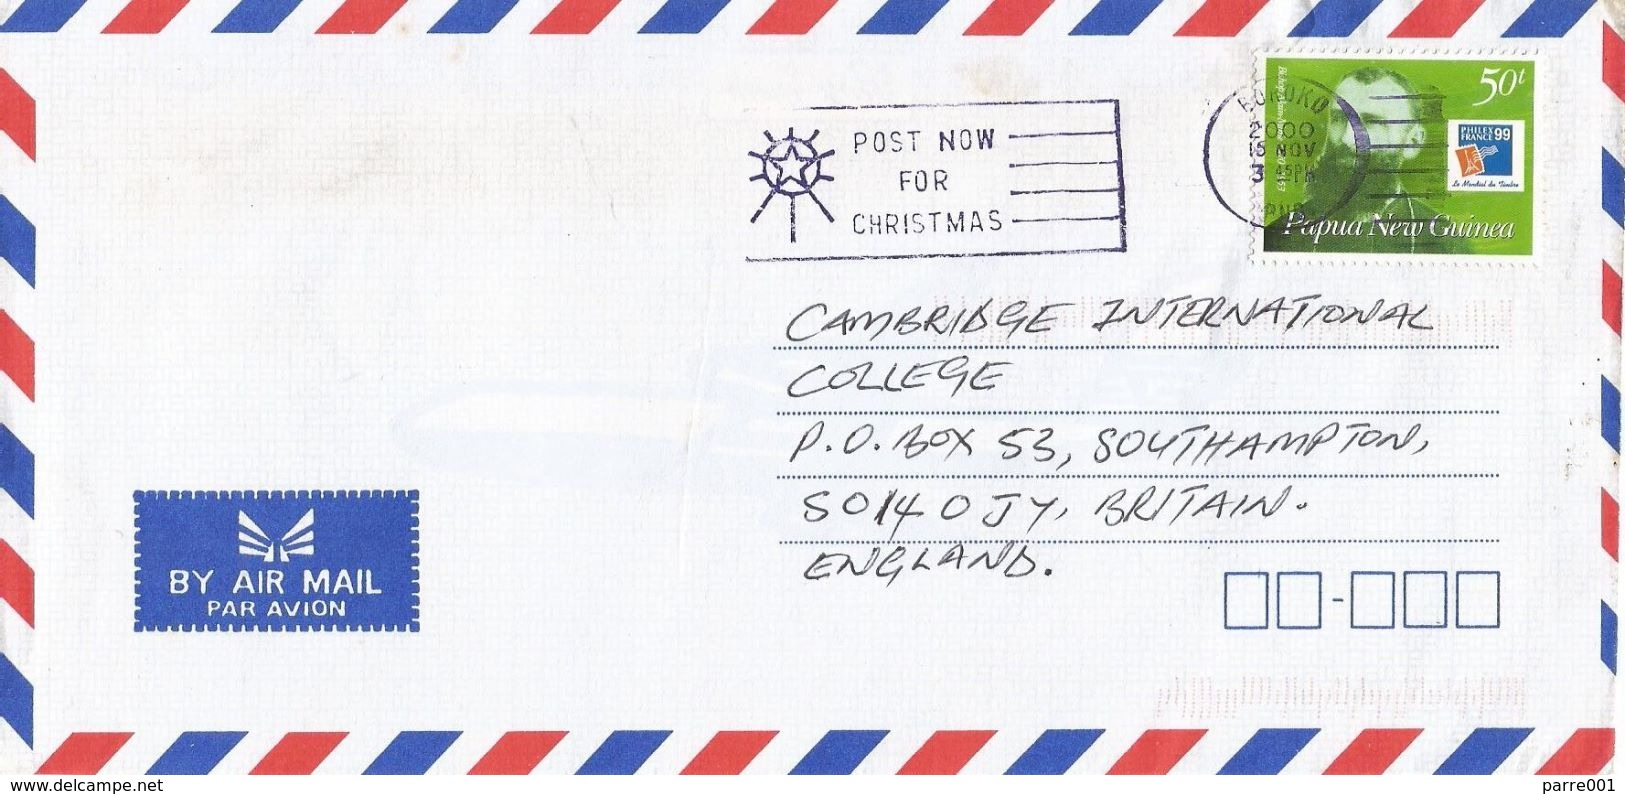 50t
PHILEX
FRANCE 99
Le Mondial du Timbre
Papua New Guinea
BOROKO
2000
15 NOV
3 45PM
POST NOW
FOR
CHRISTMAS
CAMBRIDGE INTERNATIONAL
COLLEGE
P.O. BOX 53, SOUTHAMPTON,
SO14 0JY, BRITAIN.
ENGLAND.
BY AIR MAIL
PAR AVION
www.delcampe.net
parre001